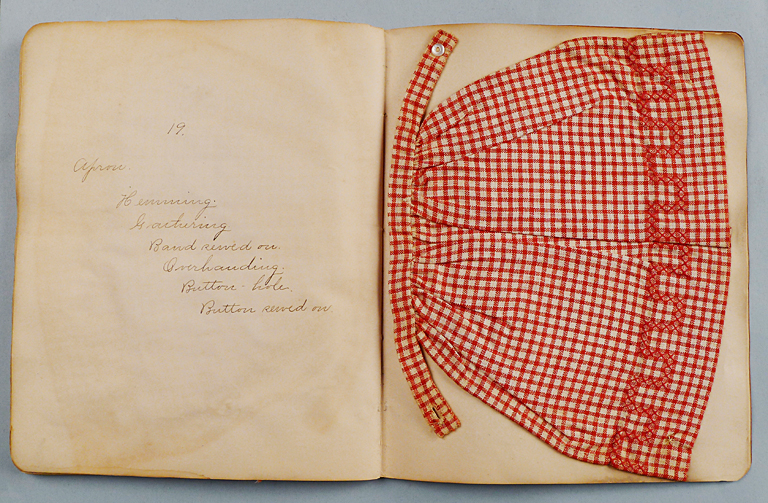 19.
Apron.
Hemming.
Gathering
Band sewed on.
Overhanding.
Button-hole.
Button sewed on